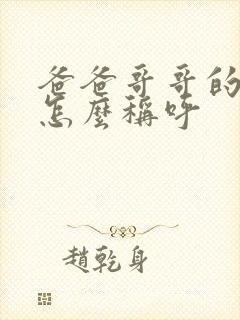 爸爸哥哥的
怎麼稱呼
趙乾身